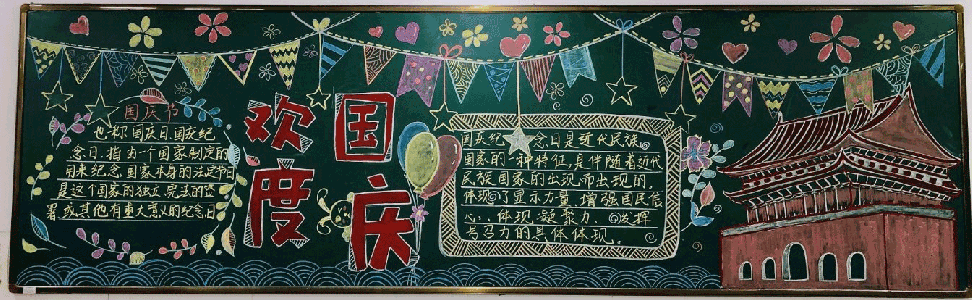 国庆节
也称国庆日、国庆纪
念日，指为一个国家制定的
用来纪念国家本身的法定节日
是这个国家的独立、完善的签
署、或其他有重大意义的纪念日
欢度
国庆
国庆纪念日是近代民族
国家的一种特征，是伴随着近代
民族国家的出现而出现的
体现了显示力量、增强国民信
心，体现凝聚力，发挥
号召力的具体体现。